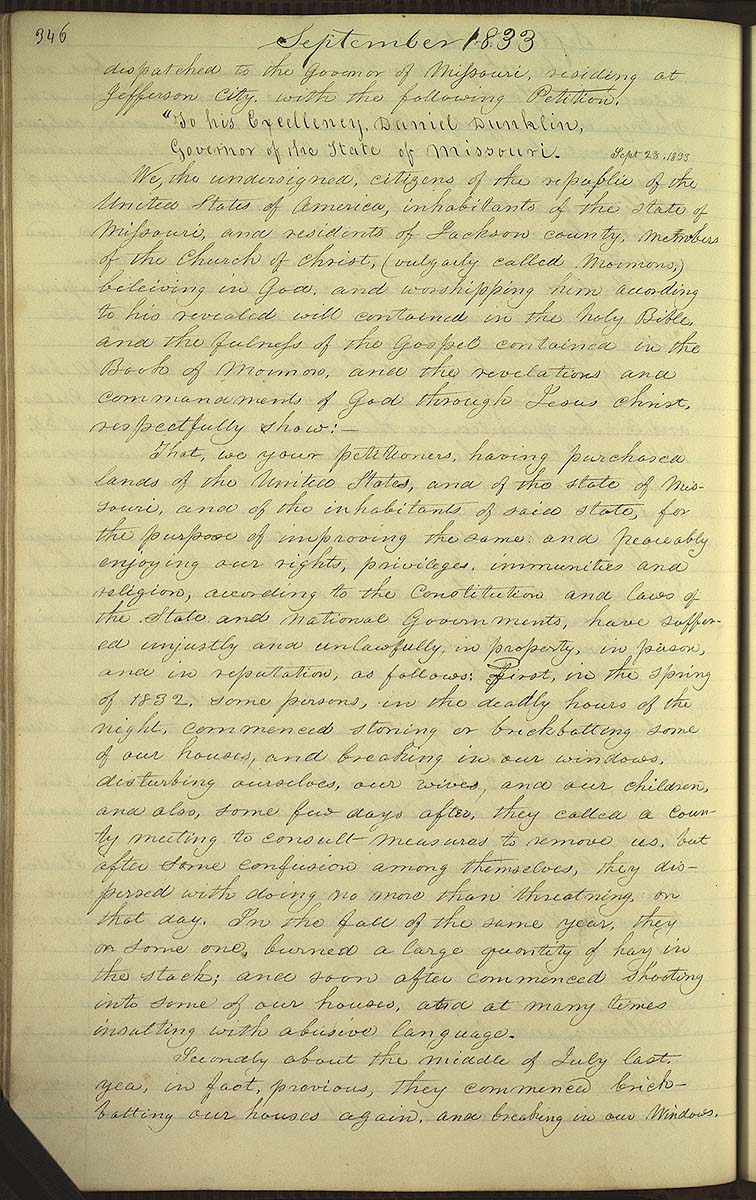 346
September 1833
dispatched to the Govenor of Missouri, residing at
Jefferson City, with the following Petition.
"To his Excellency, Daniel Dunklin,
Governor of the State of Missouri.
Sept 28. 1833
We, the undersigned, citizens of the republic of the
United States of America, inhabitants of the state of
Missouri, and residents of Jackson county, members
of the Church of Christ, (vulgarly called Mormons,)
beleiving in God, and worshipping him according
to his revealed will contained in the holy Bible,
and the fulness of the Gospel contained in the
Book of Mormon, and the revelations and
commandments of God through Jesus Christ,
respectfully show:—
That, we your petitioners, having purchased
lands of the United States, and of the state of Mis-
souri, and of the inhabitants of said state, for
the purpose of improving the same: and peaceably
enjoying our rights, privileges, immunities and
religion, according to the Constitution and laws of
the State and national Governments, have suffer-
ed unjustly and unlawfully, in property, in person,
and in reputation, as follows: First, in the spring
of 1832, some persons, in the deadly hours of the
night, commenced stoning or brickbatting some
of our houses, and breaking in our windows,
disturbing ourselves, our wives, and our children,
and also, some few days after, they called a coun-
ty meeting to consult measures to remove us, but
after some confusion among themselves, they dis-
persed with doing no more than threatning, on
that day. In the fall of the same year, they
or some one, burned a large quantity of hay in
the stack; and soon after commenced shooting
into some of our houses, and at many times
insulting with abusive language.
Secondly about the middle of July last,
yea, in fact, previous, they commenced brick-
batting our houses again, and breaking in our Windows.